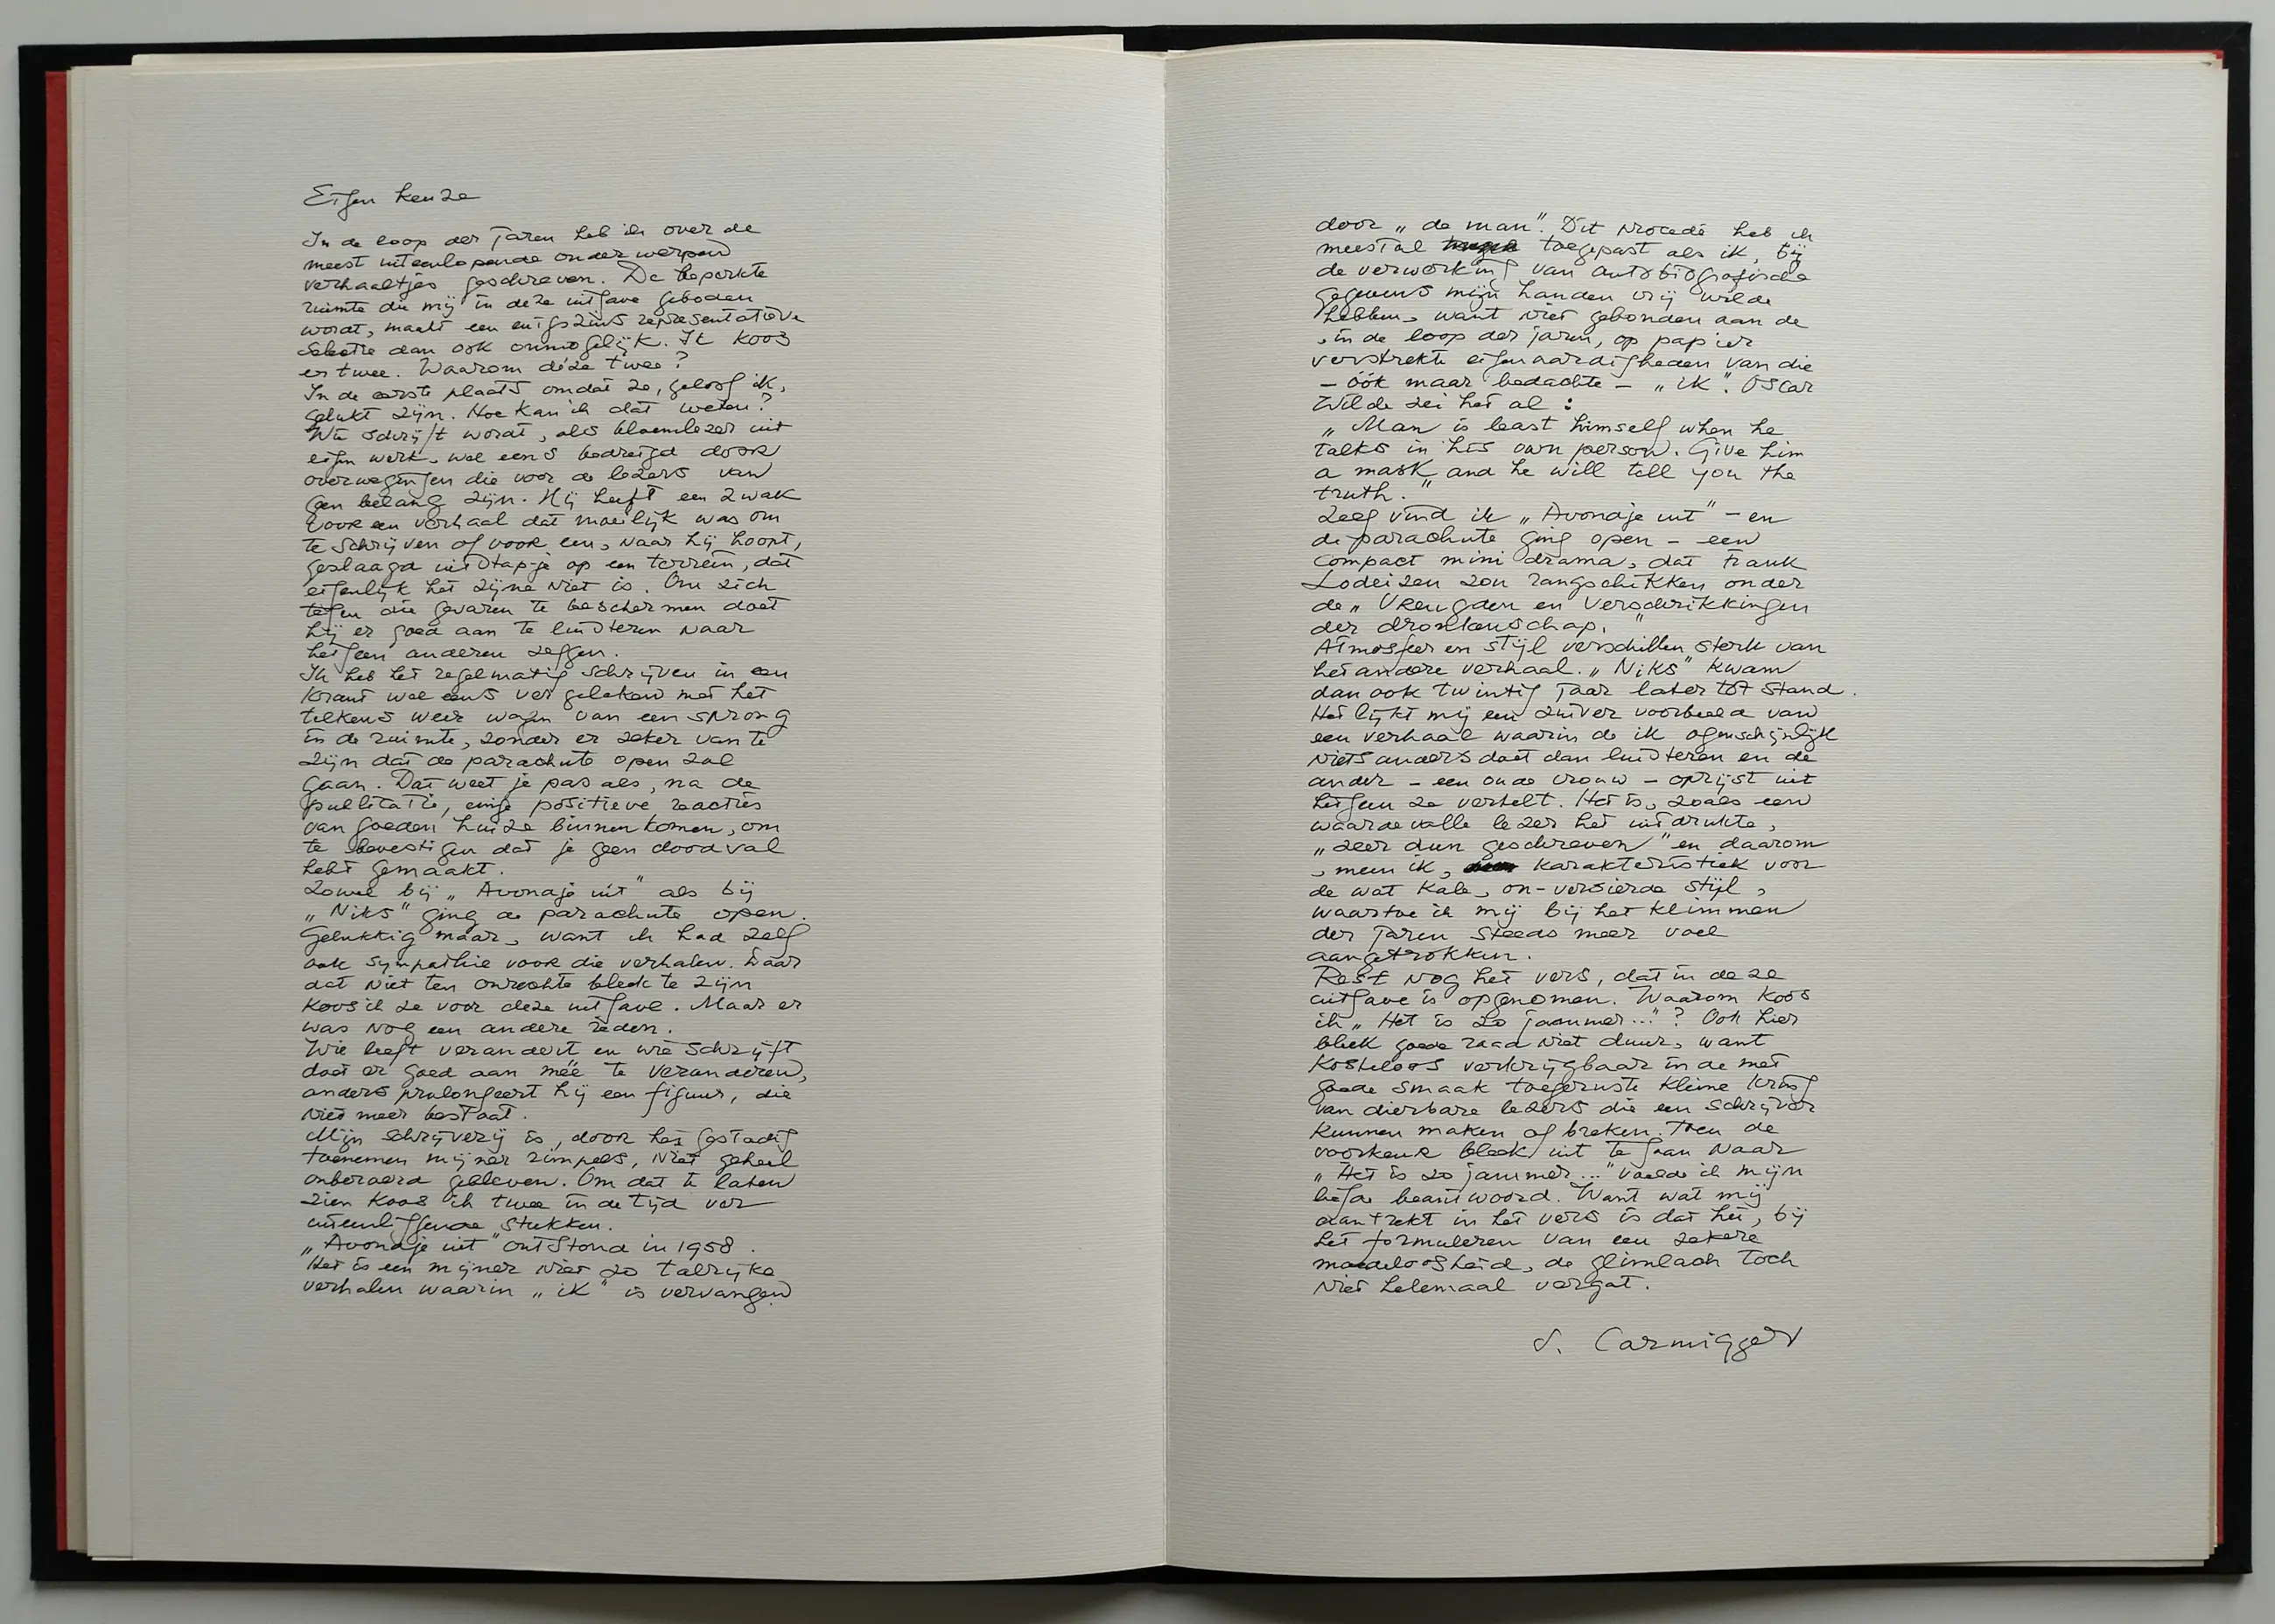 Eigen keuze
In de loop der jaren heb ik over de
meest uiteenlopende onderwerpen
verhaaltjes geschreven. De beperkte
ruimte die mij in deze uitgave geboden
wordt, maakt een enigszins representatieve
selectie dan ook onmogelijk. Ik koos
er twee. Waarom déze twee?
In de eerste plaats omdat ze, geloof ik,
gelukt zijn. Hoe kan ik dat weten?
Wie schrijft wordt, als bloemlezer uit
eigen werk, wel eens bedreigd door
overwegingen die voor de lezers van
geen belang zijn. Hij heeft een zwak
voor een verhaal dat moeilijk was om
te schrijven of voor een, naar hij hoopt,
geslaagd uitstapje op een terrein, dat
eigenlijk het zijne niet is. Om zich
tegen die gevaren te beschermen doet
hij er goed aan te luisteren naar
hetgeen anderen zeggen.
Ik heb het regelmatig schrijven in een
krant wel eens vergeleken met het
telkens weer wagen van een sprong
in de ruimte, zonder er zeker van te
zijn dat de parachute open zal
gaan. Dat weet je pas als, na de
publicatie, enige positieve reacties
van goeden huize binnenkomen, om
te bevestigen dat je geen doodval
hebt gemaakt.
Zowel bij „Avondje uit” als bij
„Niks” ging de parachute open.
Gelukkig maar, want ik had zelf
ook sympathie voor die verhalen. Daar
dat niet ten onrechte bleek te zijn
koos ik ze voor deze uitgave. Maar er
was nog een andere reden.
Wie leeft verandert en wie schrijft
doet er goed aan méé te veranderen,
anders prolongeert hij een figuur, die
niet meer bestaat.
Mijn schrijverij is, door het gestadig
toenemen mijner rimpels, niet geheel
onberoerd gebleven. Om dat te laten
zien koos ik twee in de tijd ver
uiteenliggende stukken.
„Avondje uit” ontstond in 1958.
Het is een mijner niet zo talrijke
verhalen waarin „ik” is vervangen
door „de man”. Dit procedé heb ik
meestal toegepast als ik, bij
de verwerking van autobiografische
gegevens mijn handen vrij wilde
hebben, want niet gebonden aan de
, in de loop der jaren, op papier
verstrekte eigenaardigheden van die
– óók maar bedachte – „ik”. Oscar
Wilde zei het al:
„Man is least himself when he
talks in his own person. Give him
a mask and he will tell you the
truth.”
Zelf vind ik „Avondje uit” – en
de parachute ging open – een
compact mini drama, dat Frank
Lodeizen zou rangschikken onder
de „Vreugden en Verschrikkingen
der dronkenschap.”
Atmosfeer en stijl verschillen sterk van
het andere verhaal. „Niks” kwam
dan ook twintig jaar later tot stand.
Het lijkt mij een zuiver voorbeeld van
een verhaal waarin de ik ogenschijnlijk
niets anders doet dan luisteren en de
ander – een oude vrouw – oprijst uit
hetgeen ze vertelt. Het is, zoals een
waardevolle lezer het uitdrukte,
„zeer dun geschreven” en daarom
, meen ik, karakteristiek voor
de wat kale, on-versierde stijl,
waartoe ik mij bij het klimmen
der jaren steeds meer voel
aangetrokken.
Rest nog het vers, dat in deze
uitgave is opgenomen. Waarom koos
ik „Het is zo jammer...”? Ook hier
bleek goede raad niet duur, want
kosteloos verkrijgbaar in de met
goede smaak toegeruste kleine kring
van dierbare lezers die een schrijver
kunnen maken of breken. Toen de
voorkeur bleek uit te gaan naar
„Het is zo jammer...” voelde ik mijn
liefde beantwoord. Want wat mij
aantrekt in het vers is dat het, bij
het formuleren van een zekere
moedeloosheid, de glimlach toch
niet helemaal vergat.
S. Carmiggelt